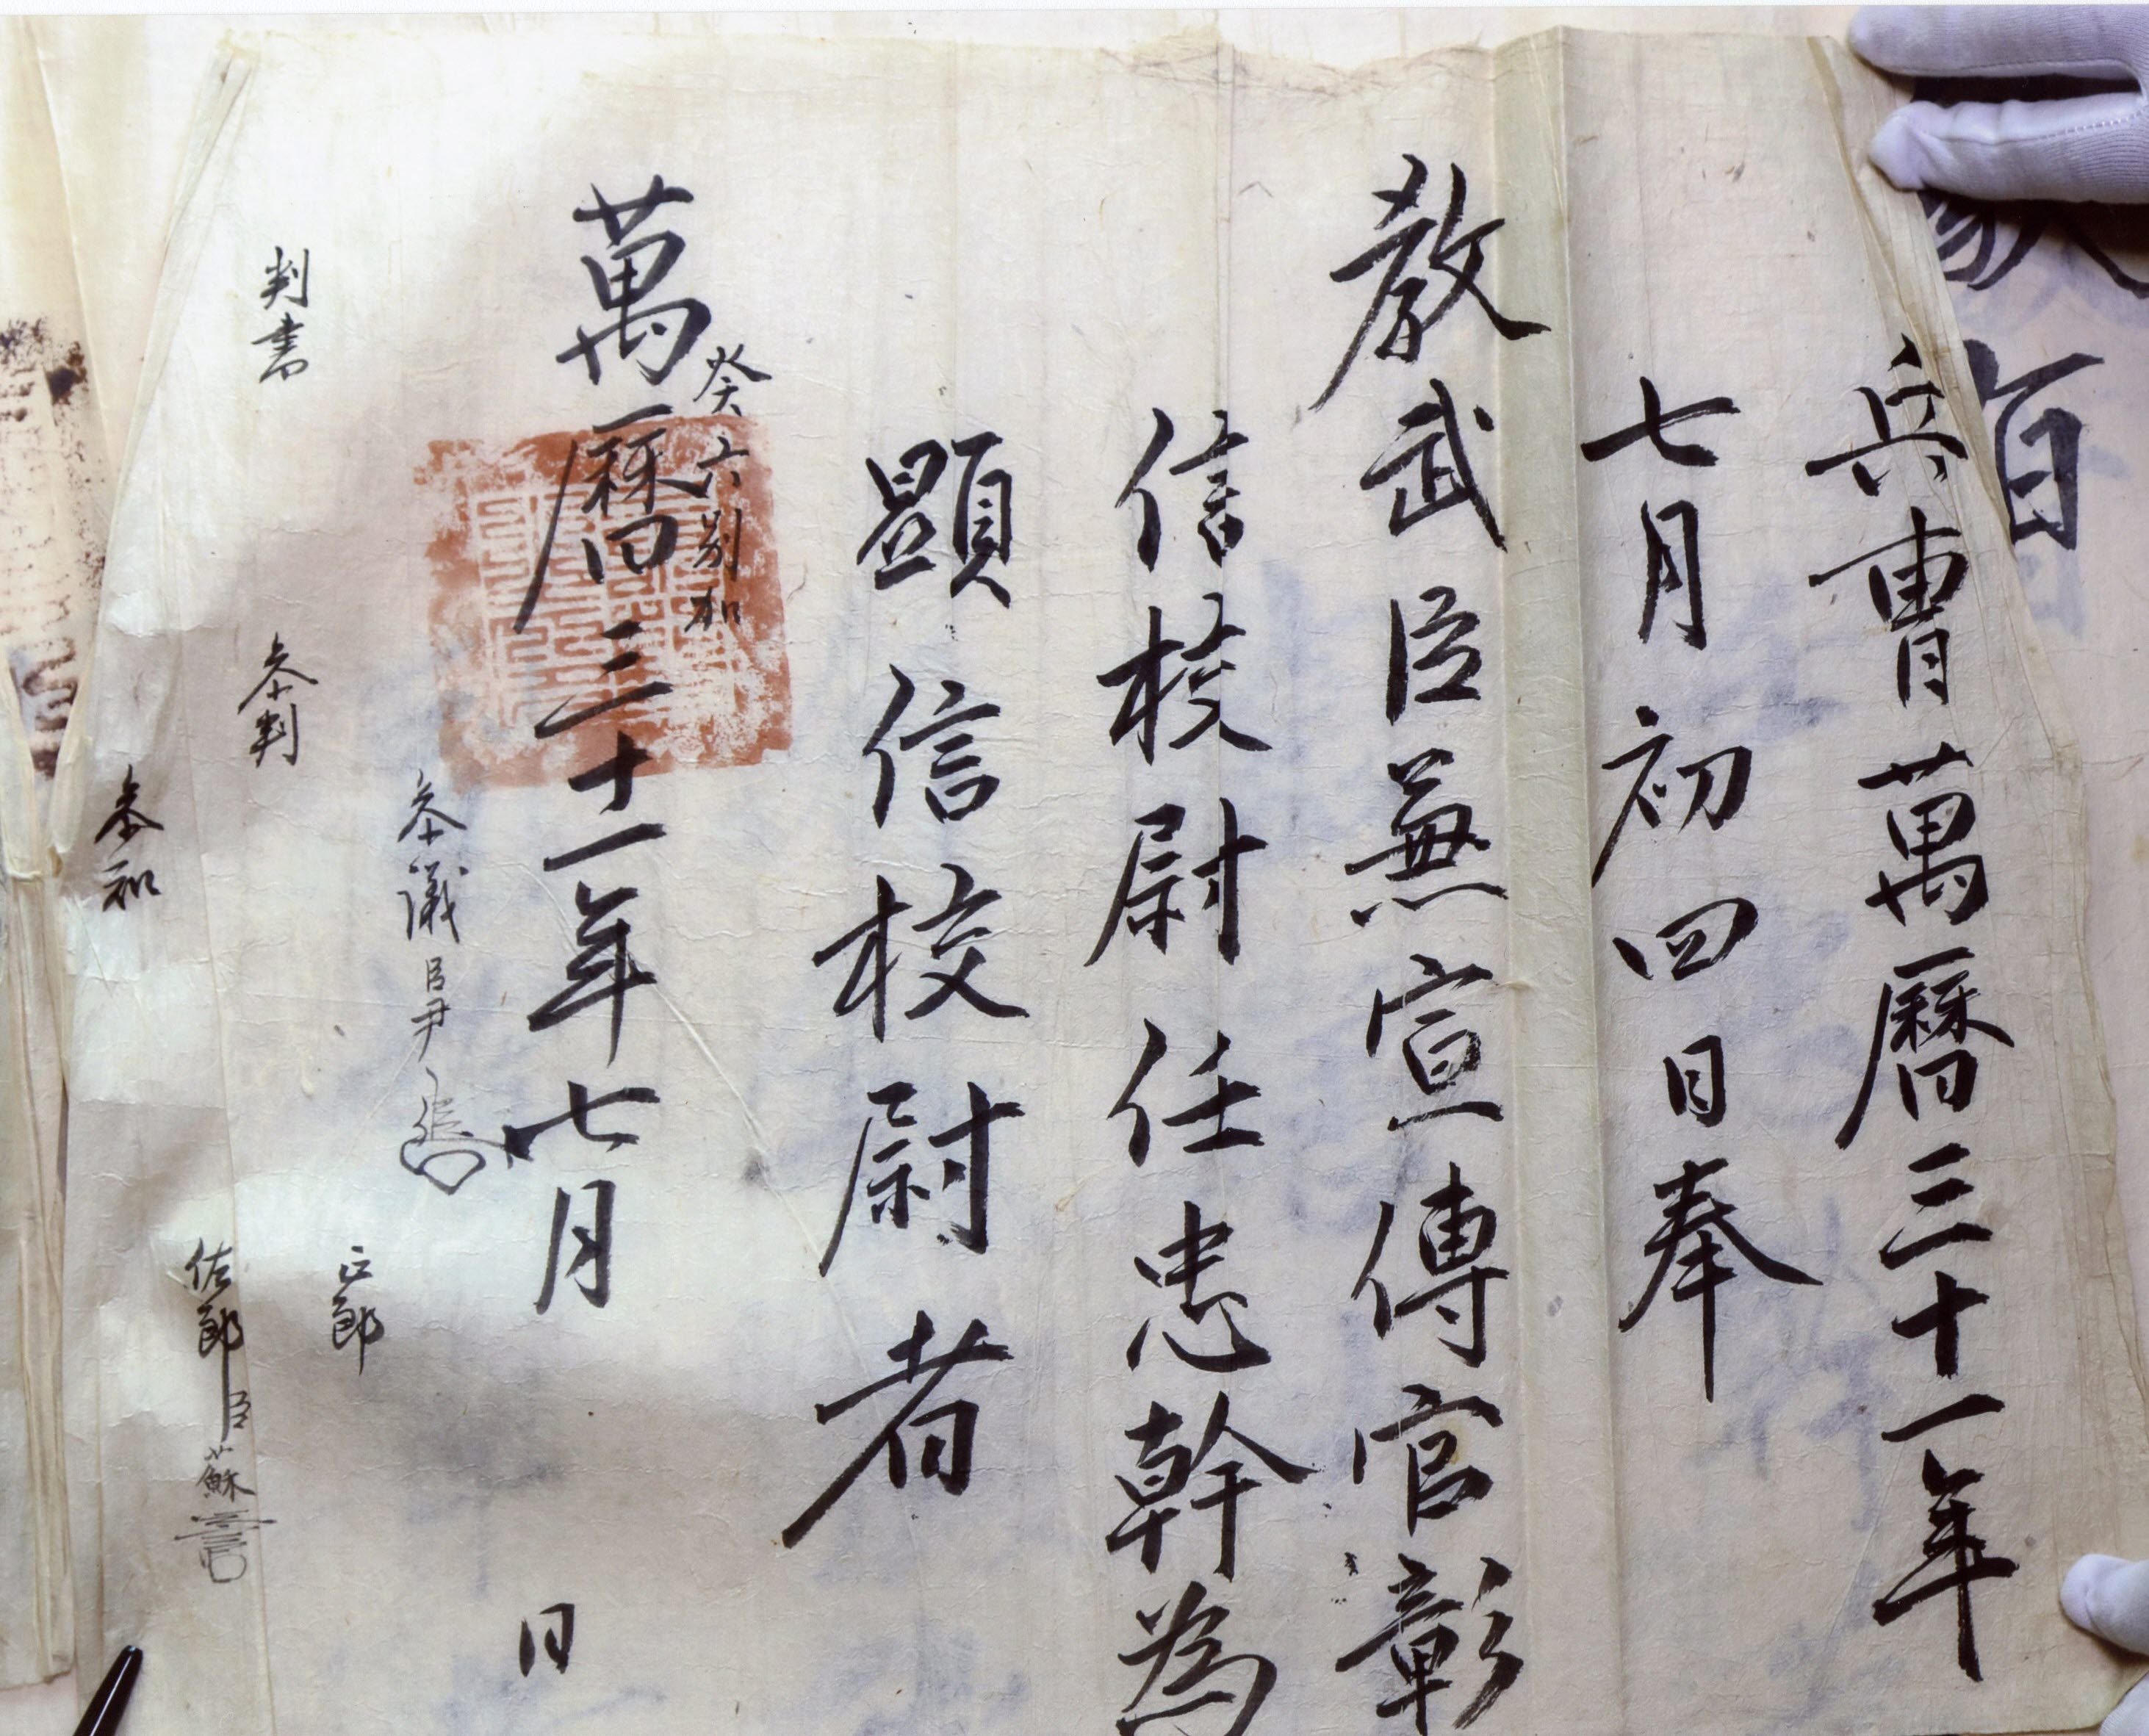 兵曹萬曆三十一年
七月初四日奉
教武臣兼宣傳官彰
信校尉任忠幹為
顯信校尉者
萬曆三十一年七月 日
癸六別加
判書
參判
參議臣尹
參知
正郎
佐郎臣蘇
百